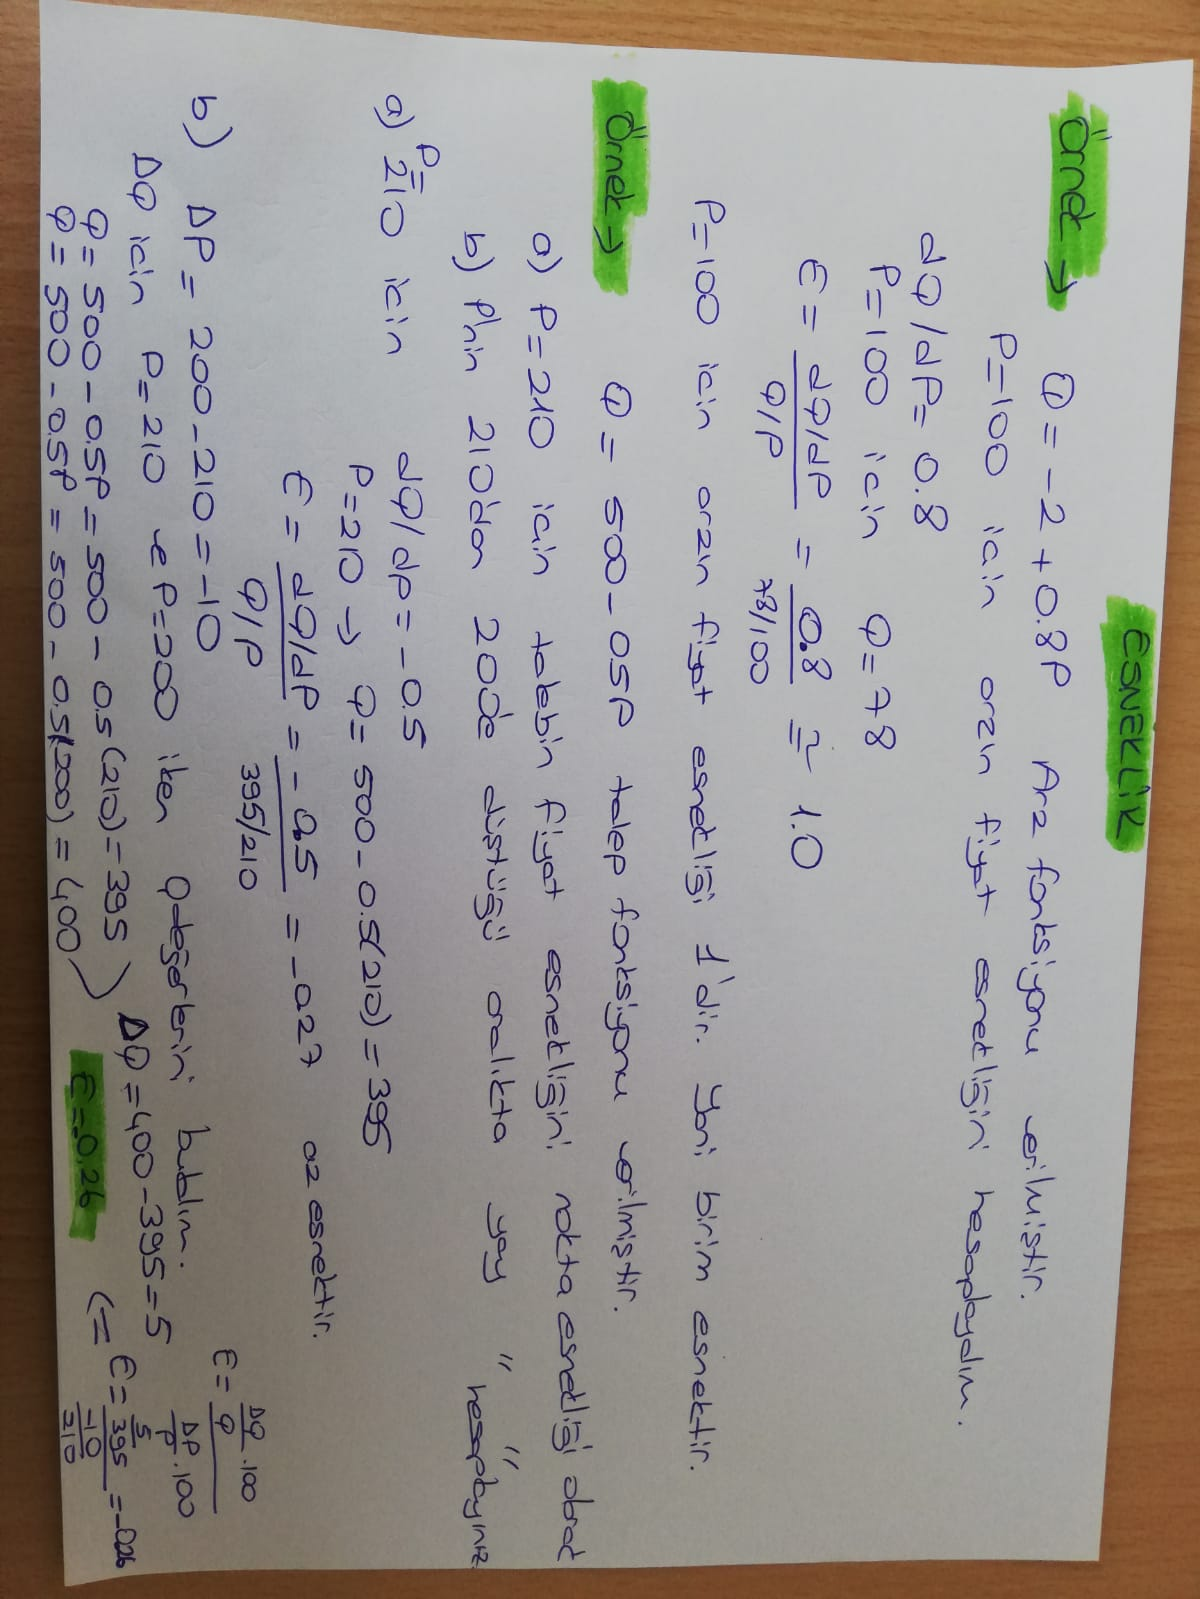 ESNEKLİK
Örnek → Q = -2 + 0.8P Arz fonksiyonu verilmistir.
P=100 icin arzın fiyat esnekliğini hesaplayalım.
dQ/dP = 0.8
P=100 icin Q = 78
E = dQ/dP / Q/P = 0.8 / 78/100 ≅ 1.0
P=100 icin arzın fiyat esnekliği 1'dir. Yani birim esnektir.
Örnek → Q = 500 - 05P talep fonksiyonu verilmiştir.
a) P=210 icin talebin fiyat esnekliğini nokta esnekliği olarak
b) P'nin 210dan 200'e düştüğü aralıkta yay " " hesaplayınız.
a) P= 210 icin dQ/dP = -0.5
P=210 → Q = 500 - 0.5(210) = 395
E = dQ/dP / Q/P = -0.5 / 395/210 = -0.27 az esnektir.
b) ΔP = 200-210 = -10
ΔQ icin P=210 ve P=200 iken Q değerlerini bulalım.
Q = 500 - 0.5P = 500 - 0.5(210) = 395
Q = 500 - 0.5P = 500 - 0.5(200) = 400
ΔQ = 400 - 395 = 5
E = ΔQ/Q .100 / ΔP/P .100
E = 5/395 / -10/210 = -0.26
E = -0.26